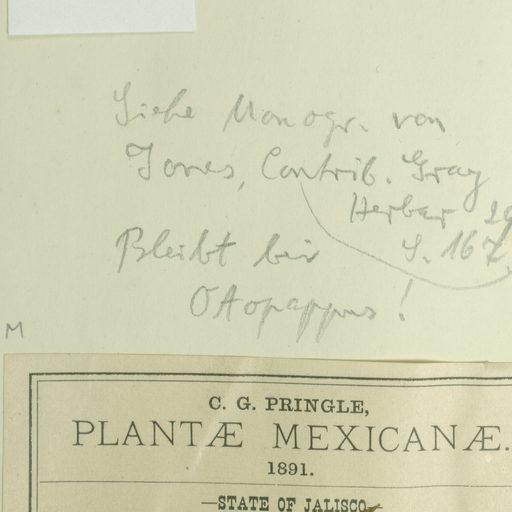 Siehe Monogr. von
Jones, Contrib. Gray
Herbar
S. 167
Bleibt bei
Otopappus!
M
C. G. PRINGLE,
PLANTÆ MEXICANÆ.
1891.
—STATE OF JALISCO—